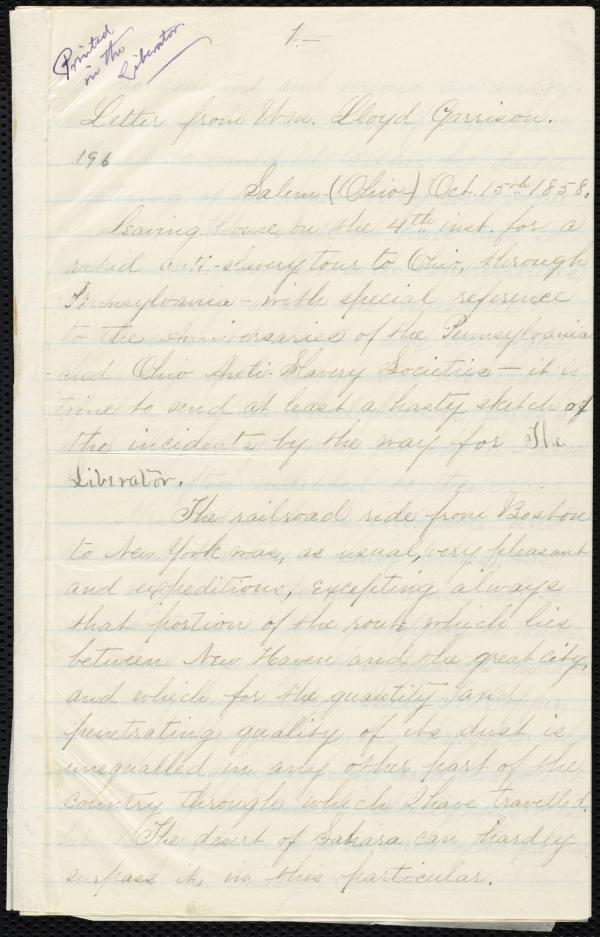 1.—
Printed
in the
Liberator.
Letter from Wm. Lloyd Garrison.
196
Salem (Ohio) Oct. 15th 1858.
Leaving home on the 4th inst. for a
rapid anti-slavery tour to Ohio, through
Pennsylvania – with special reference
to the Anniversaries of the Pennsylvania
and Ohio Anti-Slavery Societies – it is
time to send at least a hasty sketch of
the incidents by the way for The
Liberator.
The railroad ride from Boston
to New York was, as usual, very pleasant
and expeditious, excepting always
that portion of the route which lies
between New Haven and the great city,
and which for the quantity and
penetrating quality of its dust is
unequalled in any other part of the
country through which I have travelled.
The desert of Sahara can hardly
surpass it, in this particular.